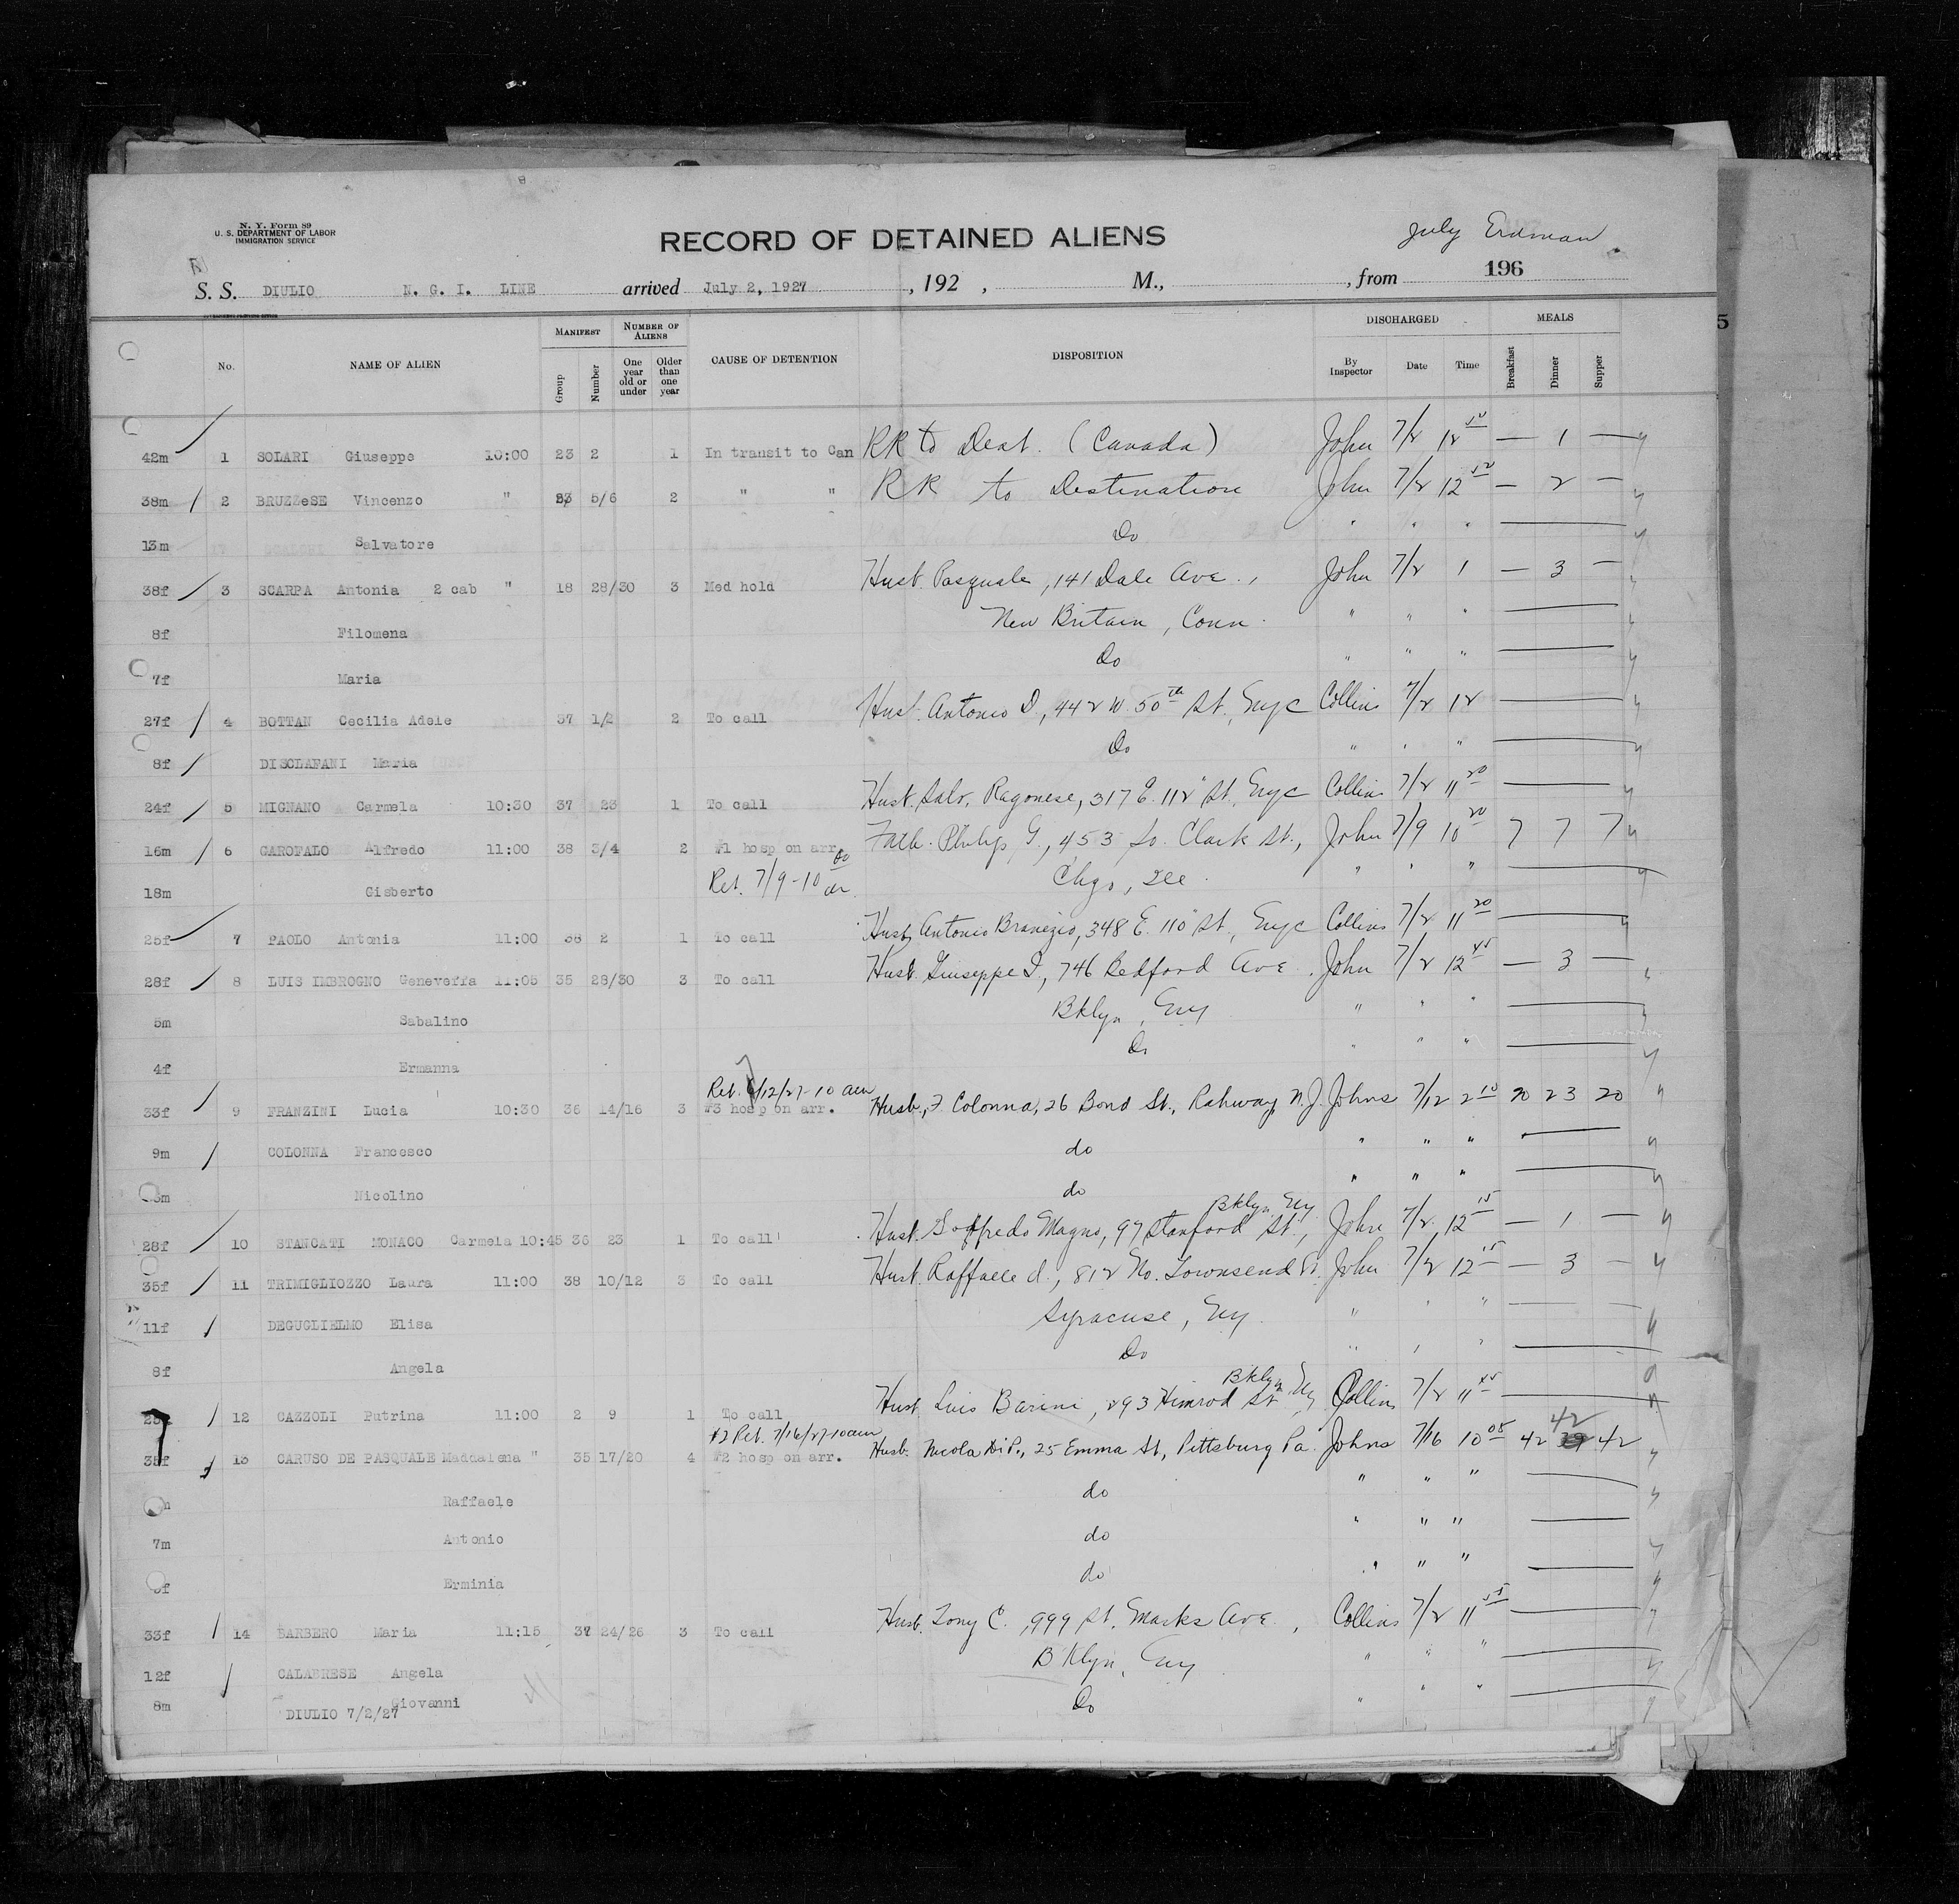 N. Y. Form 89
U. S. DEPARTMENT OF LABOR
IMMIGRATION SERVICE
RECORD OF DETAINED ALIENS
July Erdman
S. S. DIULIO N. G. I. LINE arrived July 2, 1927, 192 , M., , from 196
No. NAME OF ALIEN MANIFEST Group Number NUMBER OF ALIENS One year old or under Older than one year CAUSE OF DETENTION DISPOSITION DISCHARGED By Inspector Date Time MEALS Breakfast Dinner Supper
5
42m 1 SOLARI Giuseppe 10:00 23 2 1 In transit to Can RR to Dest. (Canada) John 7/2 12 — 1 —
38m 2 BRUZZeSE Vincenzo " 5/6 2 " " RR to Destination John 7/2 12 — 2 —
13m Salvatore Do " " "
38f 3 SCARPA Antonia 2 cab " 18 28/30 3 Med hold Husb. Pasquale, 141 Dale Ave., John 7/2 1 — 3 —
8f Filomena New Britain, Conn. " " "
7f Maria Do " " "
27f 4 BOTTAN Cecilia Adele 37 1/2 2 To call Husb. Antonio D, 442 W. 50th St., Nyc Collins 7/2 12
8f DISCLAFANI Maria Do " " "
24f 5 MIGNANO Carmela 10:30 37 23 1 To call Husb. Salv. Ragonese, 317 E. 112" St., Nyc Collins 7/2 11 20
16m 6 GAROFALO Alfredo 11:00 38 3/4 2 #1 hosp on arr. Fath. Philip G., 453 So. Clark St., John 7/9 10 20 7 7 7
18m Gisberto Ret. 7/9-10 00 Chgo, Ill. " " "
25f 7 PAOLO Antonia 11:00 38 2 1 To call Husb. Antonio Branezio, 348 E. 110" St., Nyc Collins 7/2 11 20
28f 8 LUIS IMBROGNO Geneveffa 11:05 35 28/30 3 To call Husb. Giuseppe I., 746 Bedford Ave. John 7/2 12 45 — 3 —
5m Sabalino Bklyn, Ny " " "
4f Ermanna Do " " "
Ret. 7/12/27-10 am
33f 9 FRANZINI Lucia 10:30 36 14/16 3 #3 hosp on arr. Husb., F. Colonna, 26 Bond St., Rahway, N.J. Johns 7/12 2 10 20 23 20
9m COLONNA Francesco do " " "
Nicolino do " " "
Bklyn, Ny
28f 10 STANCATI MONACO Carmela 10:45 36 23 1 To call Husb. Goffredo Magno, 97 Stanford St., John 7/2 12 15 — 1 —
35f 11 TRIMIGLIOZZO Laura 11:00 38 10/12 3 To call Husb. Raffaele d., 812 No. Townsend St. John 7/2 12 15 — 3 —
11f DEGUGLIELMO Elisa Syracuse, Ny " " "
8f Angela Do " " "
Bklyn Ny
12 CAZZOLI Putrina 11:00 2 9 1 To call Husb. Luis Barini, 293 Himrod St Collins 7/2 11 45
#2 Ret. 7/16/27-10am 42
35f 13 CARUSO DE PASQUALE Maddalena " 35 17/20 4 #2 hosp on arr. Husb. Nicola Di P., 25 Emma St., Pittsburg Pa. Johns 7/16 10 05 42 39 42
Raffaele do " " "
7m Antonio do " " "
Erminia do " " "
33f 14 BARBERO Maria 11:15 37 24/26 3 To call Husb. Tony C., 999 St. Marks Ave., Collins 7/2 11 55
12f CALABRESE Angela Bklyn, Ny " " "
8m Giovanni Do " " "
DIULIO 7/2/27